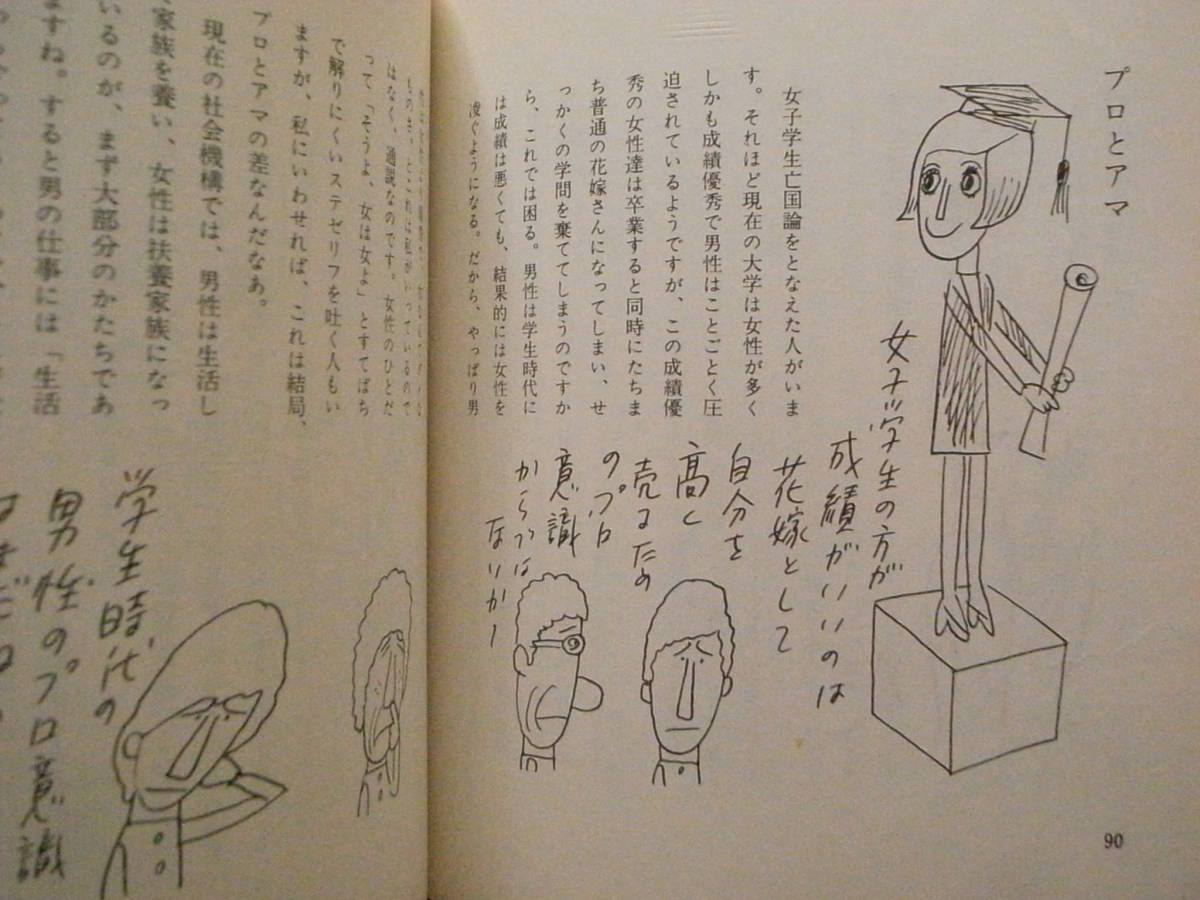 プロとアマ
女子学生亡国論をとなえた人がいま
す。それほど現在の大学は女性が多く
しかも成績優秀で男性はことごとく圧
迫されているようですが、この成績優
秀の女性達は卒業すると同時にたちま
ち普通の花嫁さんになってしまい、せ
っかくの学問を棄ててしまうのですか
ら、これでは困る。男性は学生時代に
は成績は悪くても、結果的には女性を
凌ぐようになる。だから、やっぱり男
女子学生の方が
成績がいいのは
花嫁として
自分を
高く
売るため
のプロ
意識
からではないかー
90
はなく、通説なのです。女性のひとだ
って「そうよ、女は女よ」とすてばち
で解りにくいステゼリフを吐く人もい
ますが、私にいわせれば、これは結局、
プロとアマの差なんだなあ。
現在の社会機構では、男性は生活し
家族を養い、女性は扶養家族になっ
いるのが、まず大部分のかたちであ
ますね。すると男の仕事には「生活
学生時代の
男性のプロ意識